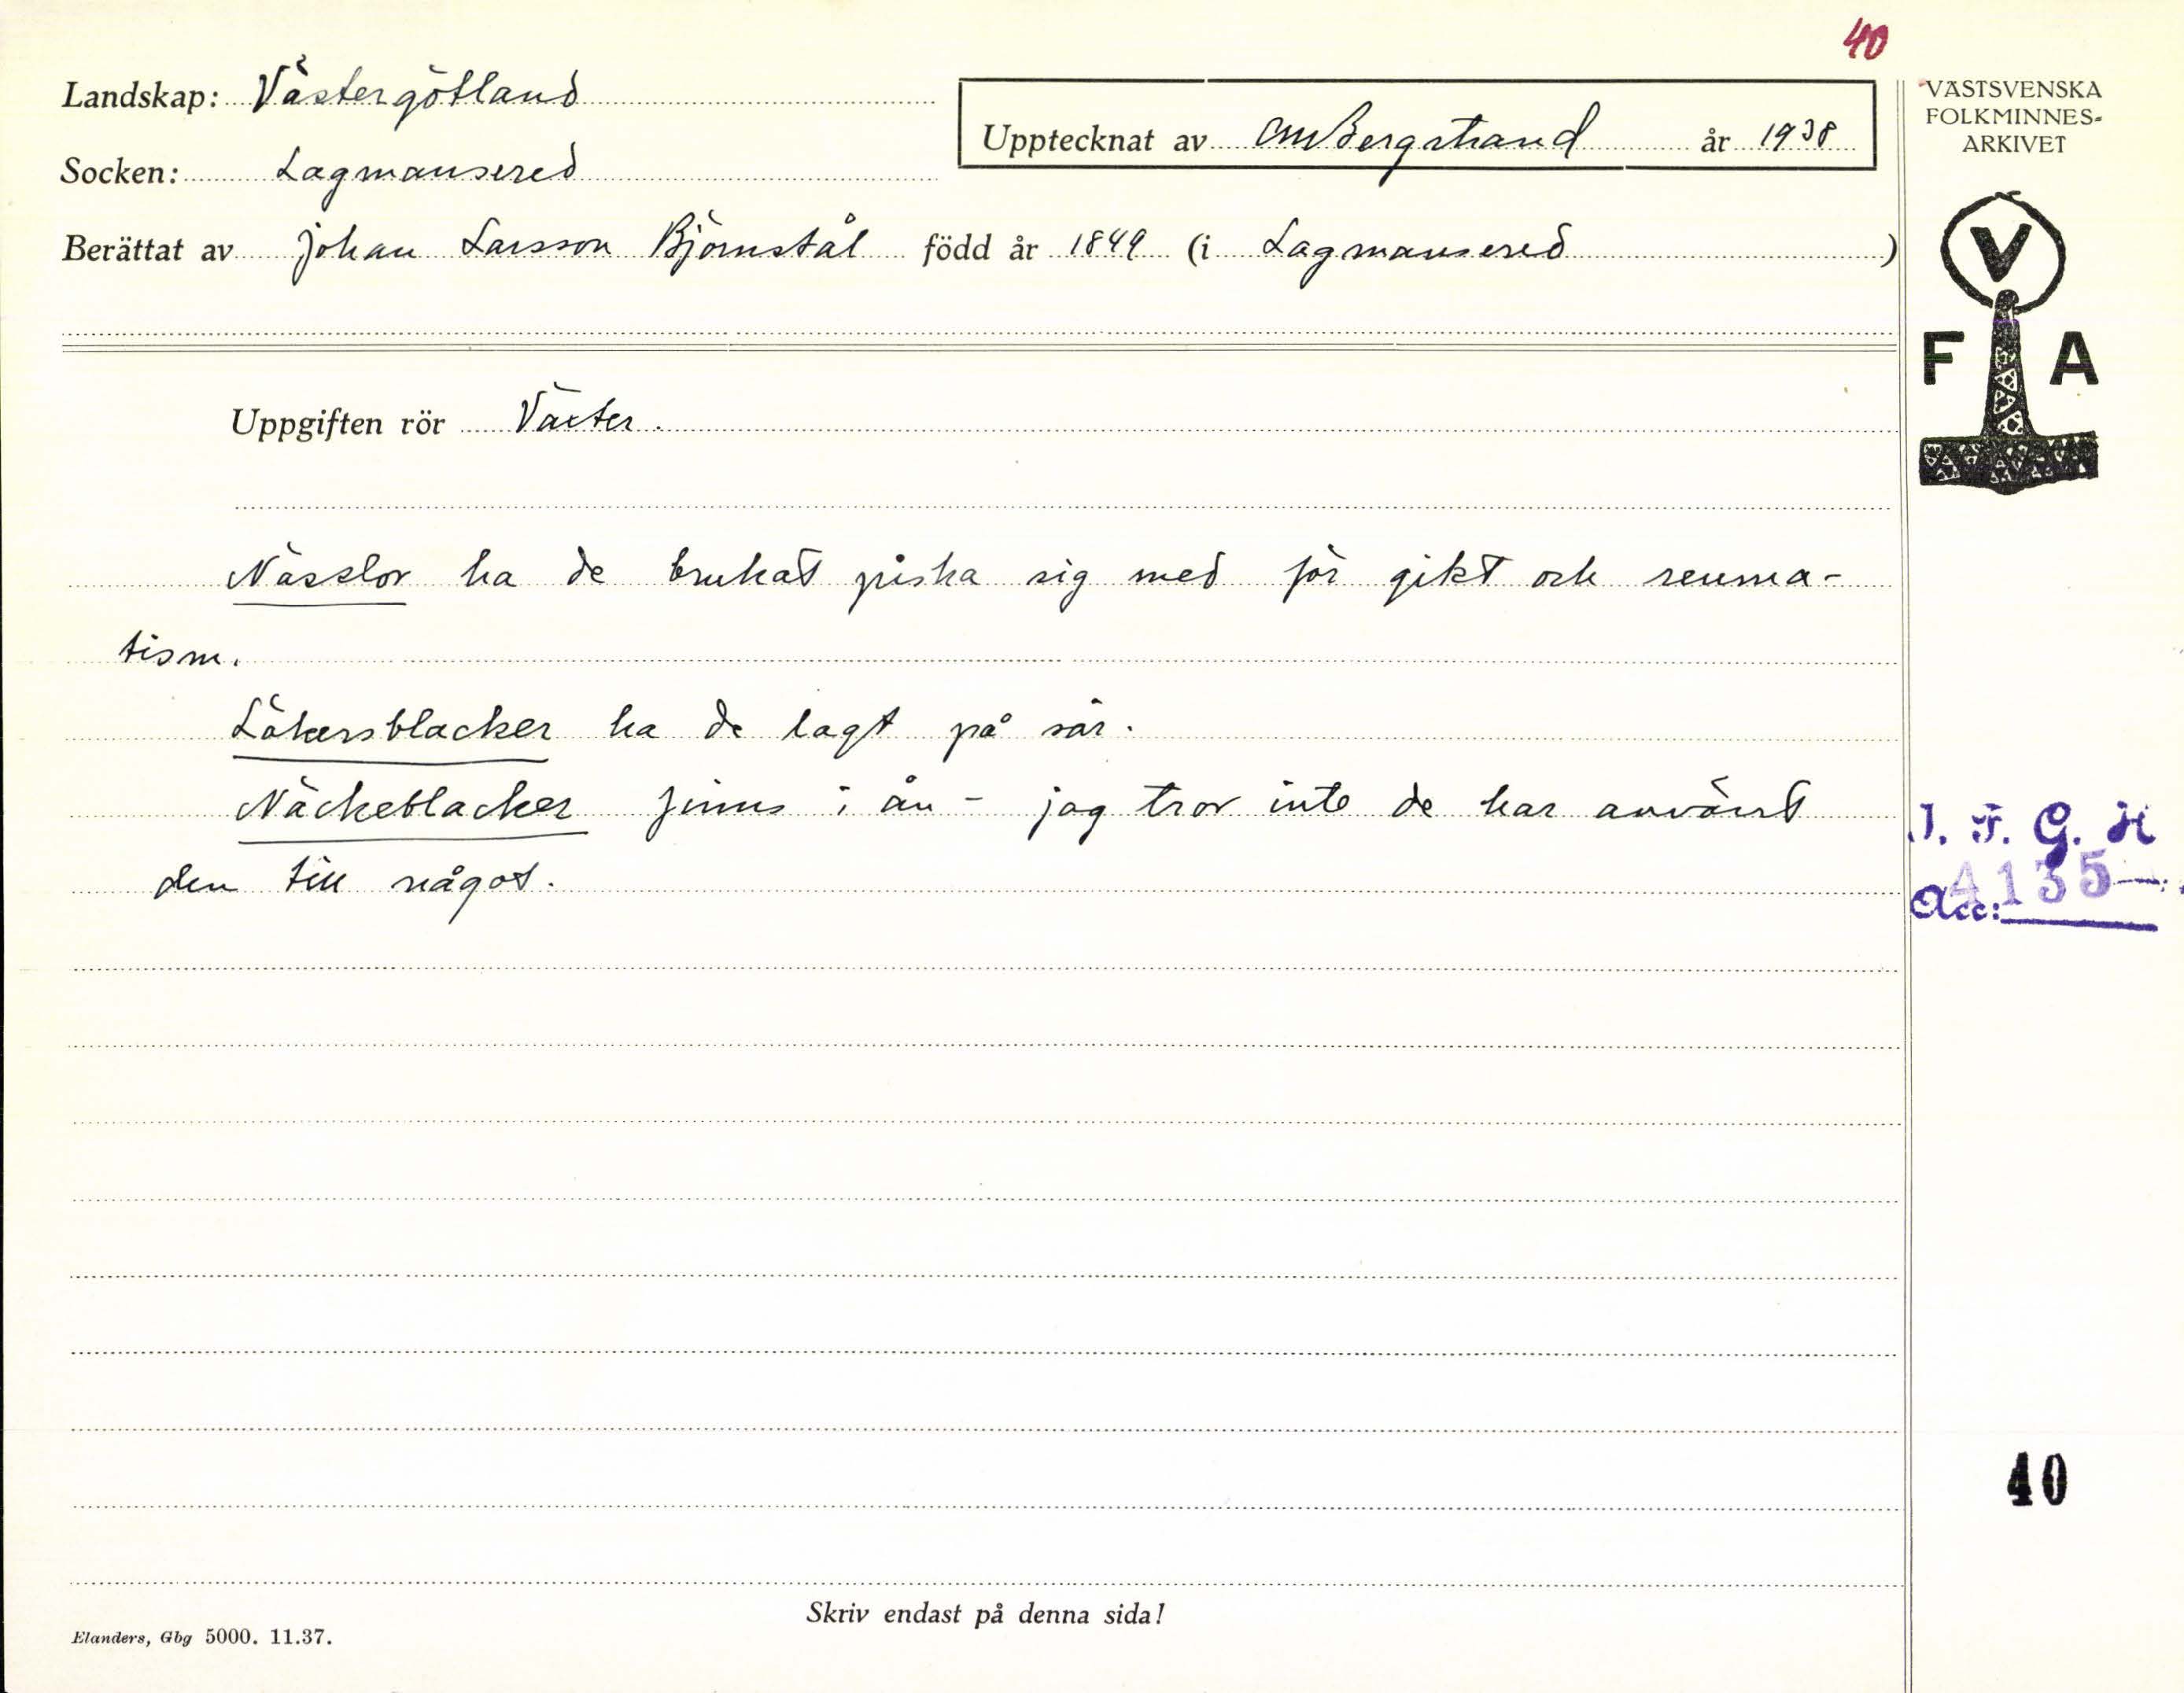 40
Landskap: Västergötland
VÄSTSVENSKA
FOLKMINNES-
ARKIVET
Upptecknat av CM Bergstrand år 1938
Socken: Lagmansered
Berättat av Johan Larsson Björnstål född år 1849 (i Lagmansered )
V
F A
Uppgiften rör Växter.
Nässlor ha de brukat piska sig med för gikt och reuma-
tism.
Läkersblacker ha de lagt på sår.
Näckeblacker finns i ån - jag tror inte de har använt
den till något.
I. F. G. H
Acc: 4135
40
Skriv endast på denna sida!
Elanders, Gbg 5000. 11.37.